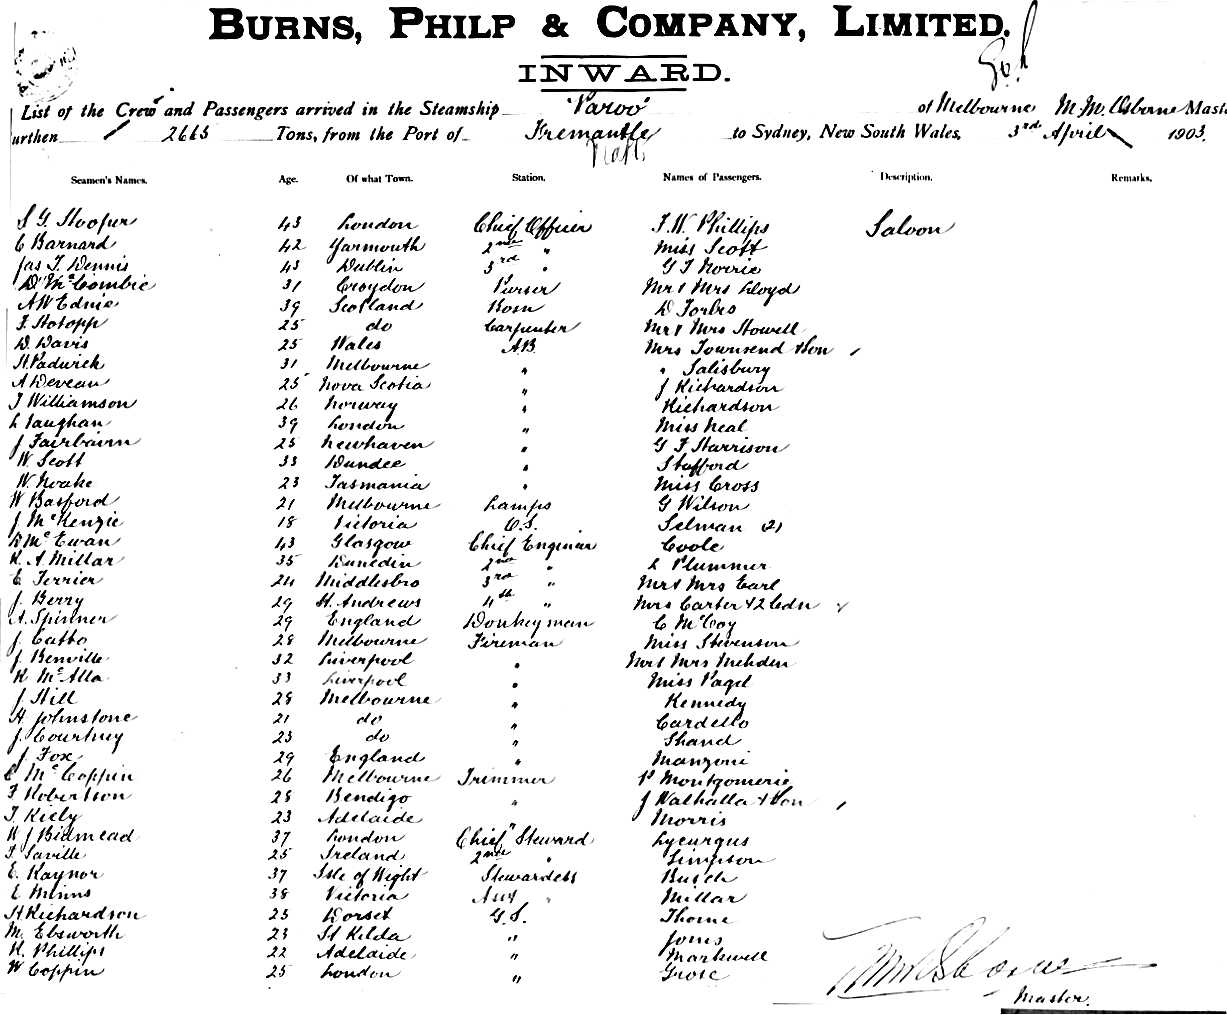 BURNS, PHILP & COMPANY, LIMITED.
INWARD.
List of the Crew and Passengers arrived in the Steamship "Paroo" of Melbourne M. M. Osborne Maste
urthen 2665 Tons, from the Port of Fremantle to Sydney, New South Wales, 3rd April 1903.
Seamen's Names. Age. Of what Town. Station. Names of Passengers. Description. Remarks.
S G Hooper 43 London Chief Officer F. W. Phillips Saloon
C Barnard 42 Yarmouth 2nd " Miss Scott
Jas T. Dennis 43 Dublin 3rd " G T Norrie
D McCombie 31 Croydon Purser Mr & Mrs Lloyd
A W Ednie 39 Scotland Bosn D Forbes
F. Hotopp 25 do Carpenter Mr & Mrs Howell
D. Davis 25 Wales A.B. Mrs Townsend & Son
H. Padwick 31 Melbourne " " Salisbury
A Deveau 25 Nova Scotia " J Richardson
T Williamson 26 Norway " Richardson
L Vaughan 39 London " Miss Neal
J Fairbairn 25 Newhaven " G F Harrison
W. Scott 33 Dundee " Stafford
W. Noake 23 Tasmania " Miss Cross
W Basford 21 Melbourne Lamps G Wilson
J McKenzie 18 Victoria O.S. Selman (2)
D McEwan 43 Glasgow Chief Engineer Coole
R. A Millar 35 Dunedin 2nd " L Plummer
C Terrier 24 Middlesbro 3rd " Mr & Mrs Earl
J. Berry 29 St. Andrews 4th " Mrs Carter & 2 Cdn
A. Spinner 29 England Donkeyman C McCoy
J. Catto 28 Melbourne Fireman Miss Stevenson
J Benville 32 Liverpool " Mr & Mrs Mehden
R McAlla 33 Liverpool " Miss Pagel
J Hill 28 Melbourne " Kennedy
H. Johnstone 21 do " Cardello
J. Courtney 23 do " Shand
J Fox 29 England " Manzoni
C McCoppin 26 Melbourne Trimmer P Montgomerie
F Robertson 28 Bendigo " J Walhalla & Son
T. Kiely 23 Adelaide " Morris
W J Bidmead 37 London Chief Steward Lycurgus
T. Saville 25 Ireland 2nd " Simpson
E. Raynor 37 Isle of Wight Stewardess Busch
E Minns 38 Victoria Asst " Millar
H Richardson 23 Dorset G.S. Thorne
M. Ebsworth 23 St Kilda " Jones
R. Phillips 22 Adelaide " Markwell
W Coppin 25 London " Grose
Master.